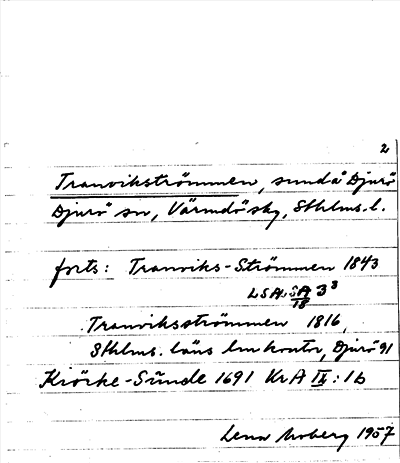 2
Tranvikströmmen, sund å Djurö
Djurö sn, Värmdö skg, Sthlms. l.
forts: Tranviks-Strömmen 1843
LSA. SA 3³
18
Tranviksströmmen 1816,
Sthlms. läns lmkontor, Djurö 91
Kiörke-Sunde 1691 KrA IX:1b
Lena Moberg 1957